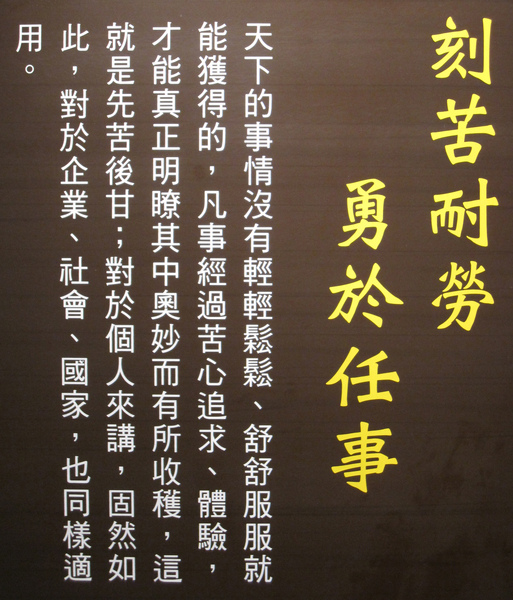 刻苦耐勞
勇於任事
天下的事情沒有輕輕鬆鬆、舒舒服服就
能獲得的，凡事經過苦心追求、體驗，
才能真正明瞭其中奧妙而有所收穫，這
就是先苦後甘；對於個人來講，固然如
此，對於企業、社會、國家，也同樣適
用。